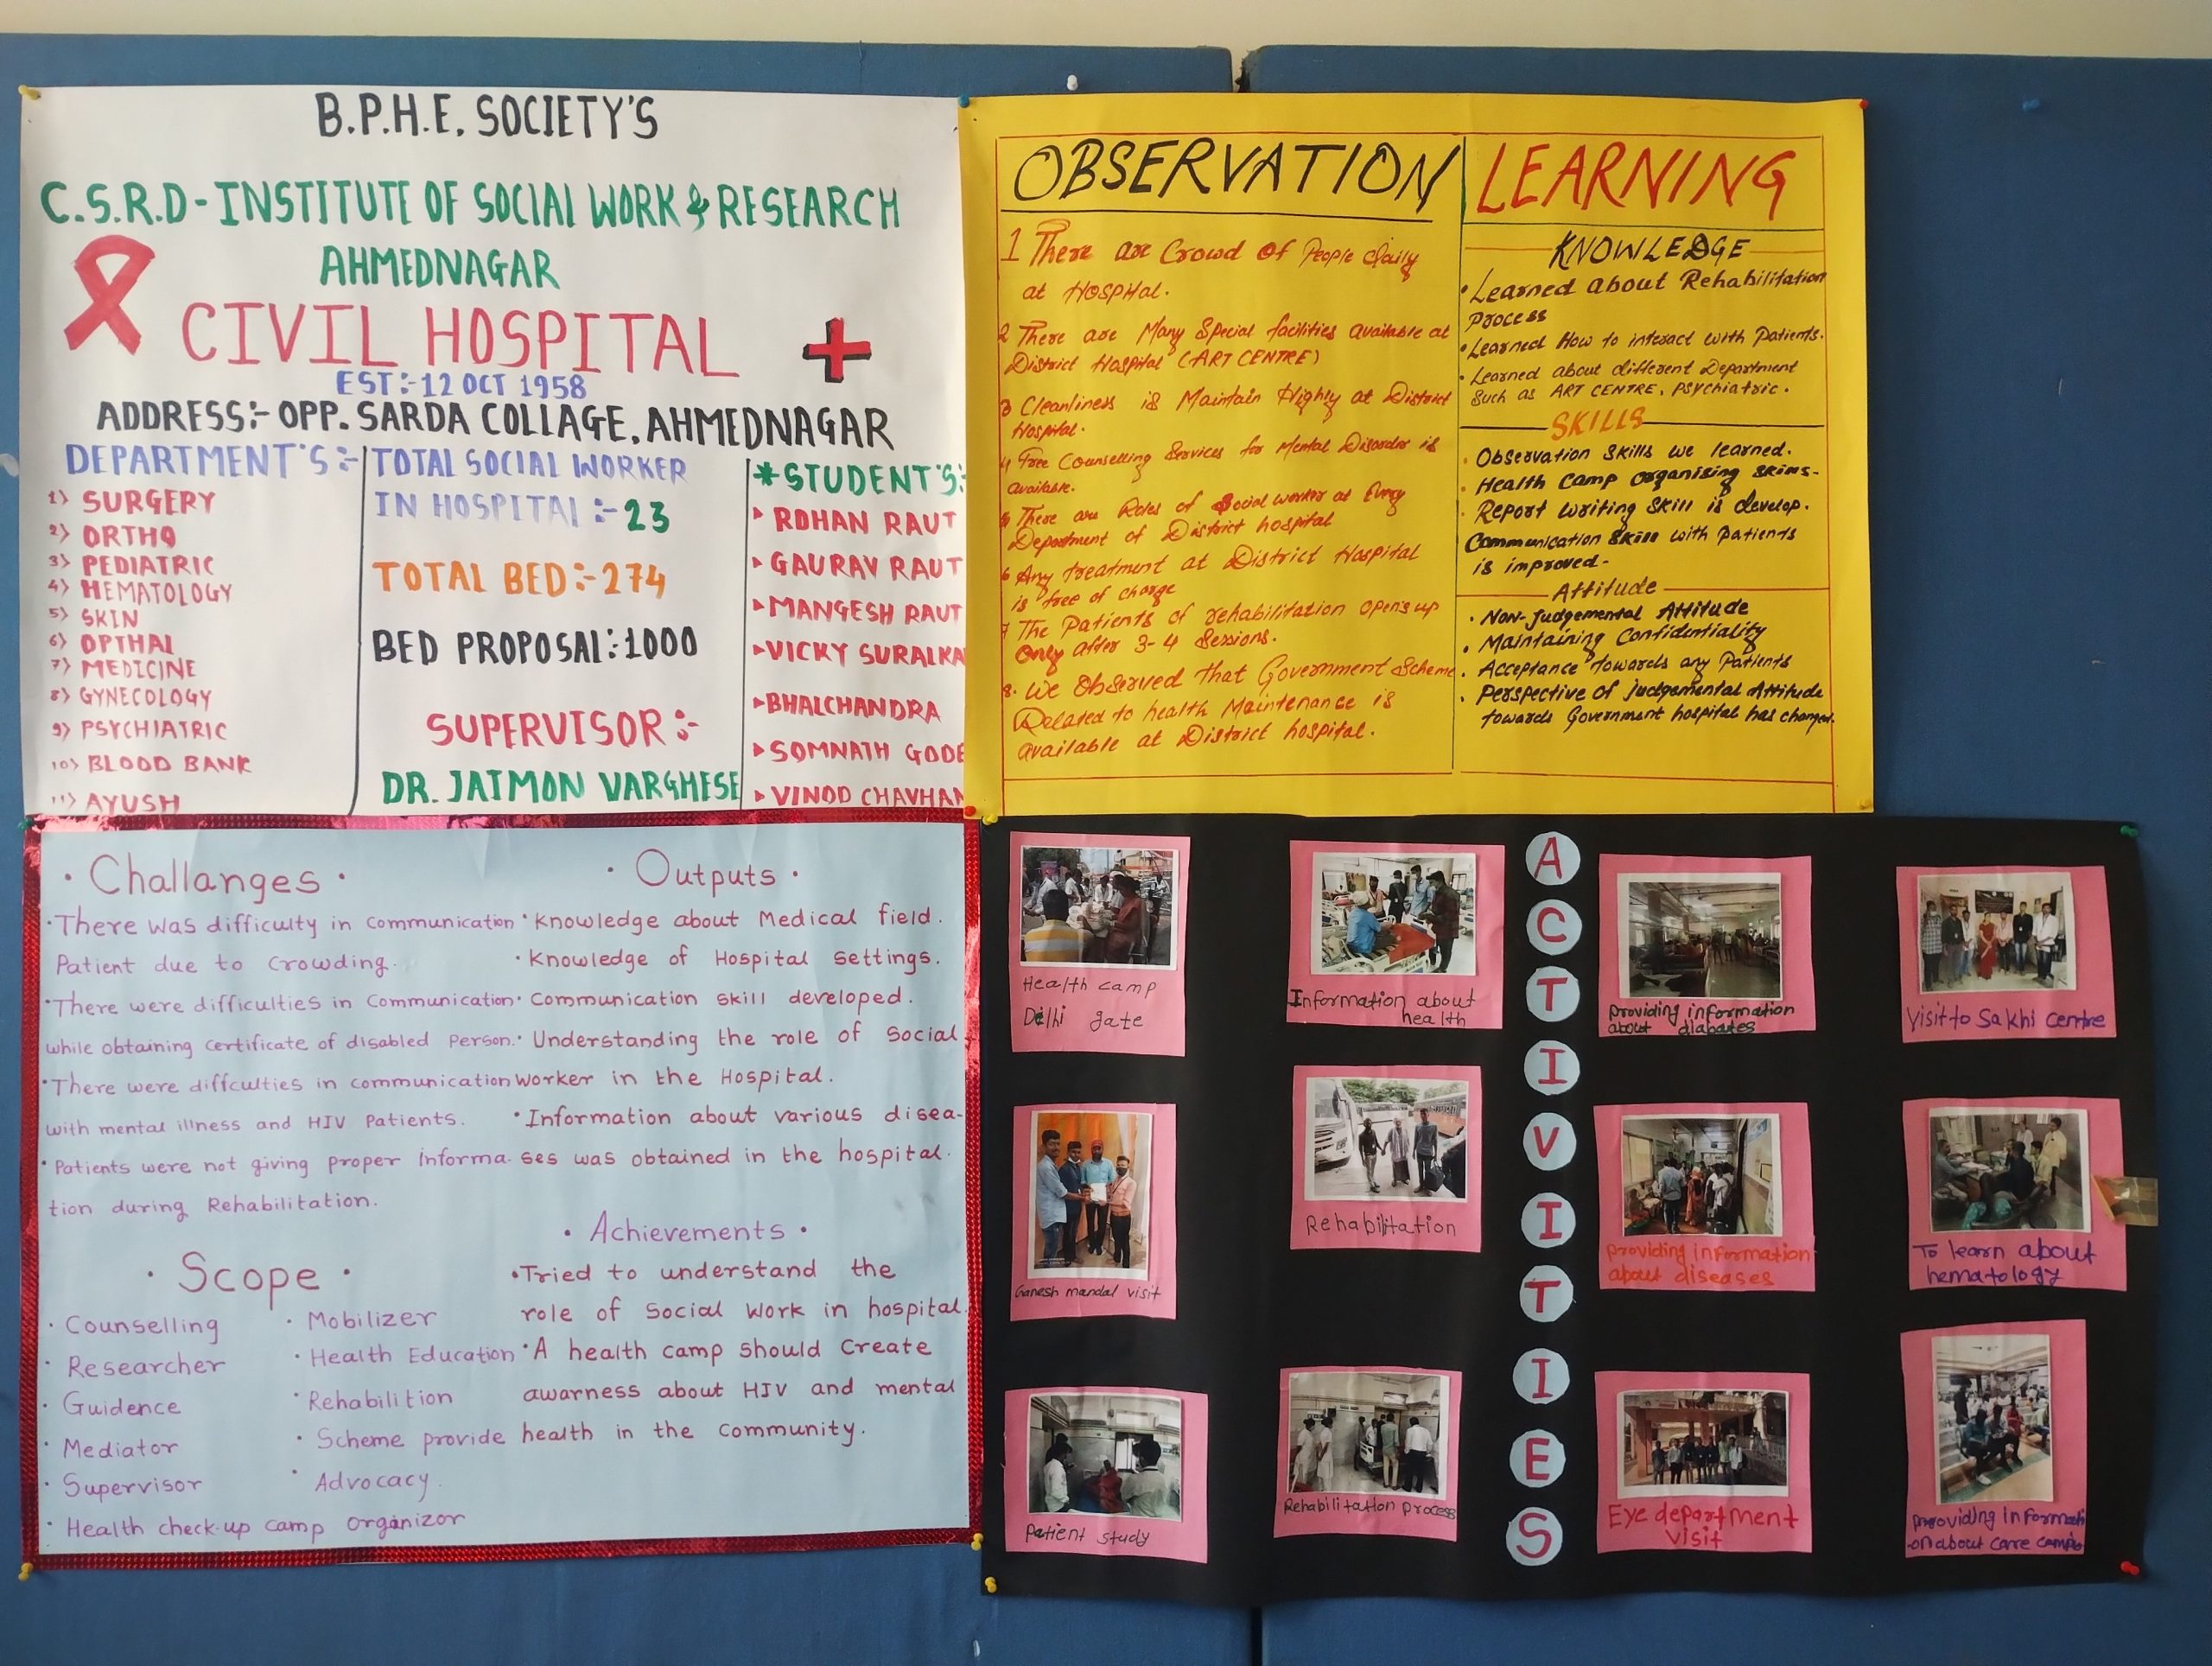 B.P.H.E. SOCIETY'S
C.S.R.D - INSTITUTE OF SOCIAL WORK & RESEARCH
AHMEDNAGAR
CIVIL HOSPITAL
EST:- 12 OCT 1958
ADDRESS:- OPP. SARDA COLLAGE, AHMEDNAGAR
DEPARTMENT'S:-
1) SURGERY
2) ORTHO
3) PEDIATRIC
4) HEMATOLOGY
5) SKIN
6) OPTHAL
7) MEDICINE
8) GYNECOLOGY
9) PSYCHIATRIC
10) BLOOD BANK
11) AYUSH
TOTAL SOCIAL WORKER
IN HOSPITAL :- 23
TOTAL BED:- 274
BED PROPOSAL:1000
SUPERVISOR :-
DR. JAIMON VARGHESE
*STUDENT'S:-
ROHAN RAUT
GAURAV RAUT
MANGESH RAUT
VICKY SURALKA
BHALCHANDRA
SOMNATH GODE
VINOD CHAVHAN
OBSERVATION
1 There are Crowd of People daily
at Hospital.
2 There are Many Special facilities available at
District Hospital (ART CENTRE)
3 Cleanliness is Maintain Highly at District
Hospital.
4 Free Counselling Services for Mental Disorder is
available.
5 There are Roles of Social worker at Every
Department of District hospital
6 Any treatment at District Hospital
is free of charge
7 The Patients of rehabilitation open's up
Only after 3-4 Sessions.
8. We Observed that Government Scheme
Related to health Maintenance is
available at District hospital.
LEARNING
KNOWLEDGE
• Learned about Rehabilitation
Process
• Learned How to interact with Patients.
• Learned about different Department
Such as ART CENTRE, Psychiatric.
SKILLS
• Observation Skills we learned.
• Health Camp organising Skills-
• Report writing Skill is develop.
Communication Skill with Patients
is improved-
Attitude
• Non-Judgemental Attitude
• Maintaining Confidentiality
• Acceptance towards any Patients
• Perspective of judgemental Attitude
towards Government hospital has changed.
• Challanges •
• There was difficulty in communication
Patient due to crowding.
• There were difficulties in communication
while obtaining certificate of disabled Person.
• There were diffculties in communication
with mental illness and HIV Patients.
• Patients were not giving proper informa-
tion during Rehabilitation.
• Scope •
• Counselling
• Researcher
• Guidence
• Mediator
• Supervisor
• Health check-up camp organizor
• Mobilizer
• Health Education
• Rehabilition
• Scheme provide
• Advocacy.
• Outputs •
• Knowledge about Medical field.
• Knowledge of Hospital settings.
• Communication skill developed.
• Understanding the role of Social
worker in the Hospital.
• Information about various disea-
ses was obtained in the hospital.
• Achievements •
• Tried to understand the
role of Social Work in hospital.
• A health camp should Create
awarness about HIV and mental
health in the community.
ACTIVITIES
Health camp
Delhi gate
Information about
health
providing information
about diabates
Visit to Sakhi centre
Ganesh mandal visit
Rehabilitation
providing information
about diseases
To learn about
hematology
Patient study
Rehabilitation process
Eye department
visit
providing informati
-on about care camp